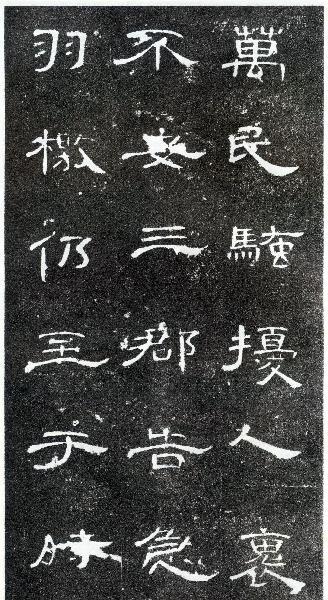 萬民騷擾人裹
不安三郡告急
羽檄仍至于時